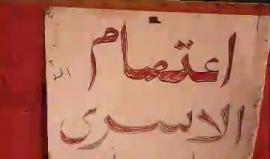 اعتصام
الاسرى